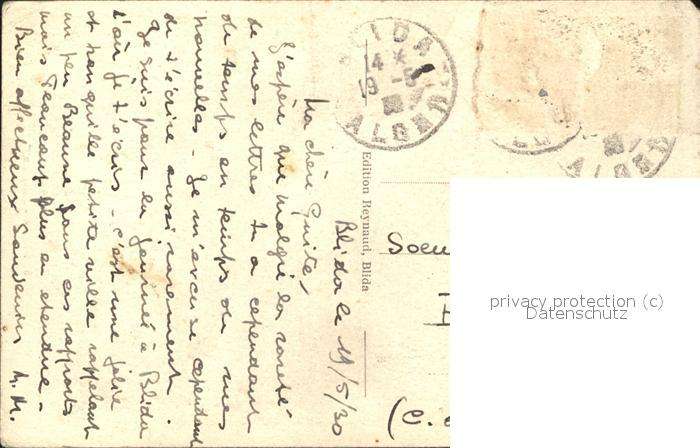 Blida le 19/5/30
Ma chère Guite,
J'espère que malgré la rareté
de mes lettres tu a cependant
de temps en temps de mes
nouvelles - Je m'excuse cependant
de t'écrire aussi rarement.
Je suis pour la journée à Blida
d'où je t'écris - c'est une jolie
et tranquille petite ville rappelant
un peu Beaune sous ces rapports
mais beaucoup plus en étendue -
Bien affectueux Souvenirs M.M.
Edition Reynaud, Blida
BLIDA
14 *
19 -5
ALGER
Soeu
(C.
privacy protection (c)
Datenschutz